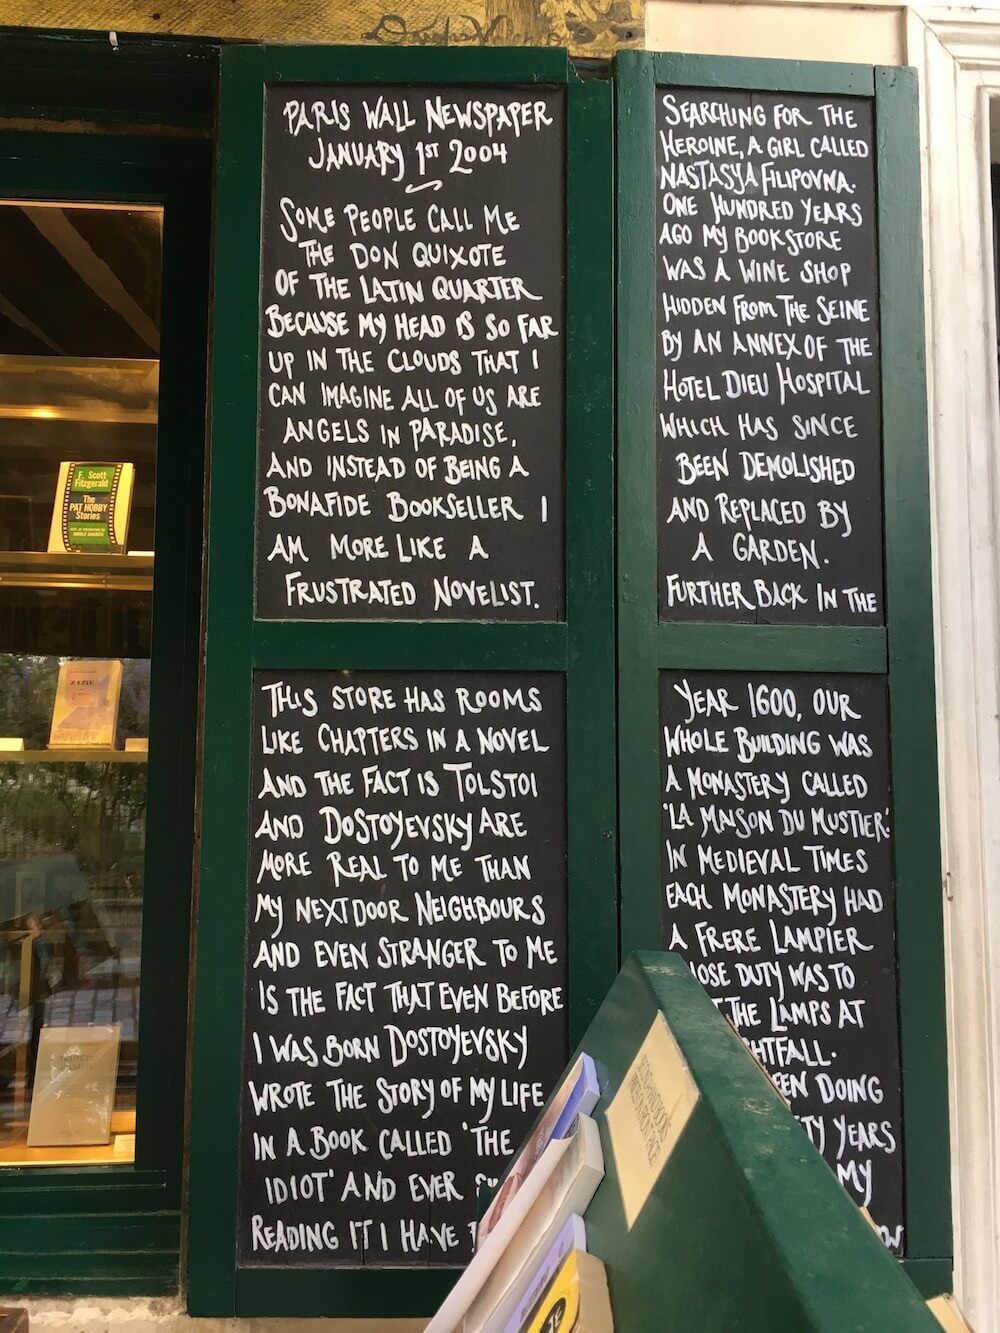 PARIS WALL NEWSPAPER
JANUARY 1ST 2004
SOME PEOPLE CALL ME
THE DON QUIXOTE
OF THE LATIN QUARTER
BECAUSE MY HEAD IS SO FAR
UP IN THE CLOUDS THAT I
CAN IMAGINE ALL OF US ARE
ANGELS IN PARADISE,
AND INSTEAD OF BEING A
BONAFIDE BOOKSELLER I
AM MORE LIKE A
FRUSTRATED NOVELIST.
THIS STORE HAS ROOMS
LIKE CHAPTERS IN A NOVEL
AND THE FACT IS TOLSTOI
AND DOSTOYEVSKY ARE
MORE REAL TO ME THAN
MY NEXT DOOR NEIGHBOURS
AND EVEN STRANGER TO ME
IS THE FACT THAT EVEN BEFORE
I WAS BORN DOSTOYEVSKY
WROTE THE STORY OF MY LIFE
IN A BOOK CALLED 'THE
IDIOT' AND EVER
READING IT I HAVE
SEARCHING FOR THE
HEROINE, A GIRL CALLED
NASTASYA FILIPOVNA.
ONE HUNDRED YEARS
AGO MY BOOKSTORE
WAS A WINE SHOP
HIDDEN FROM THE SEINE
BY AN ANNEX OF THE
HOTEL DIEU HOSPITAL
WHICH HAS SINCE
BEEN DEMOLISHED
AND REPLACED BY
A GARDEN.
FURTHER BACK IN THE
YEAR 1600, OUR
WHOLE BUILDING WAS
A MONASTERY CALLED
'LA MAISON DU MUSTIER'.
IN MEDIEVAL TIMES
EACH MONASTERY HAD
A FRERE LAMPIER
OSE DUTY WAS TO
THE LAMPS AT
HTFALL.
EEN DOING
TY YEARS
MY
OW
F. Scott
Fitzgerald
The
PAT HOBBY
Stories
ZAZIE